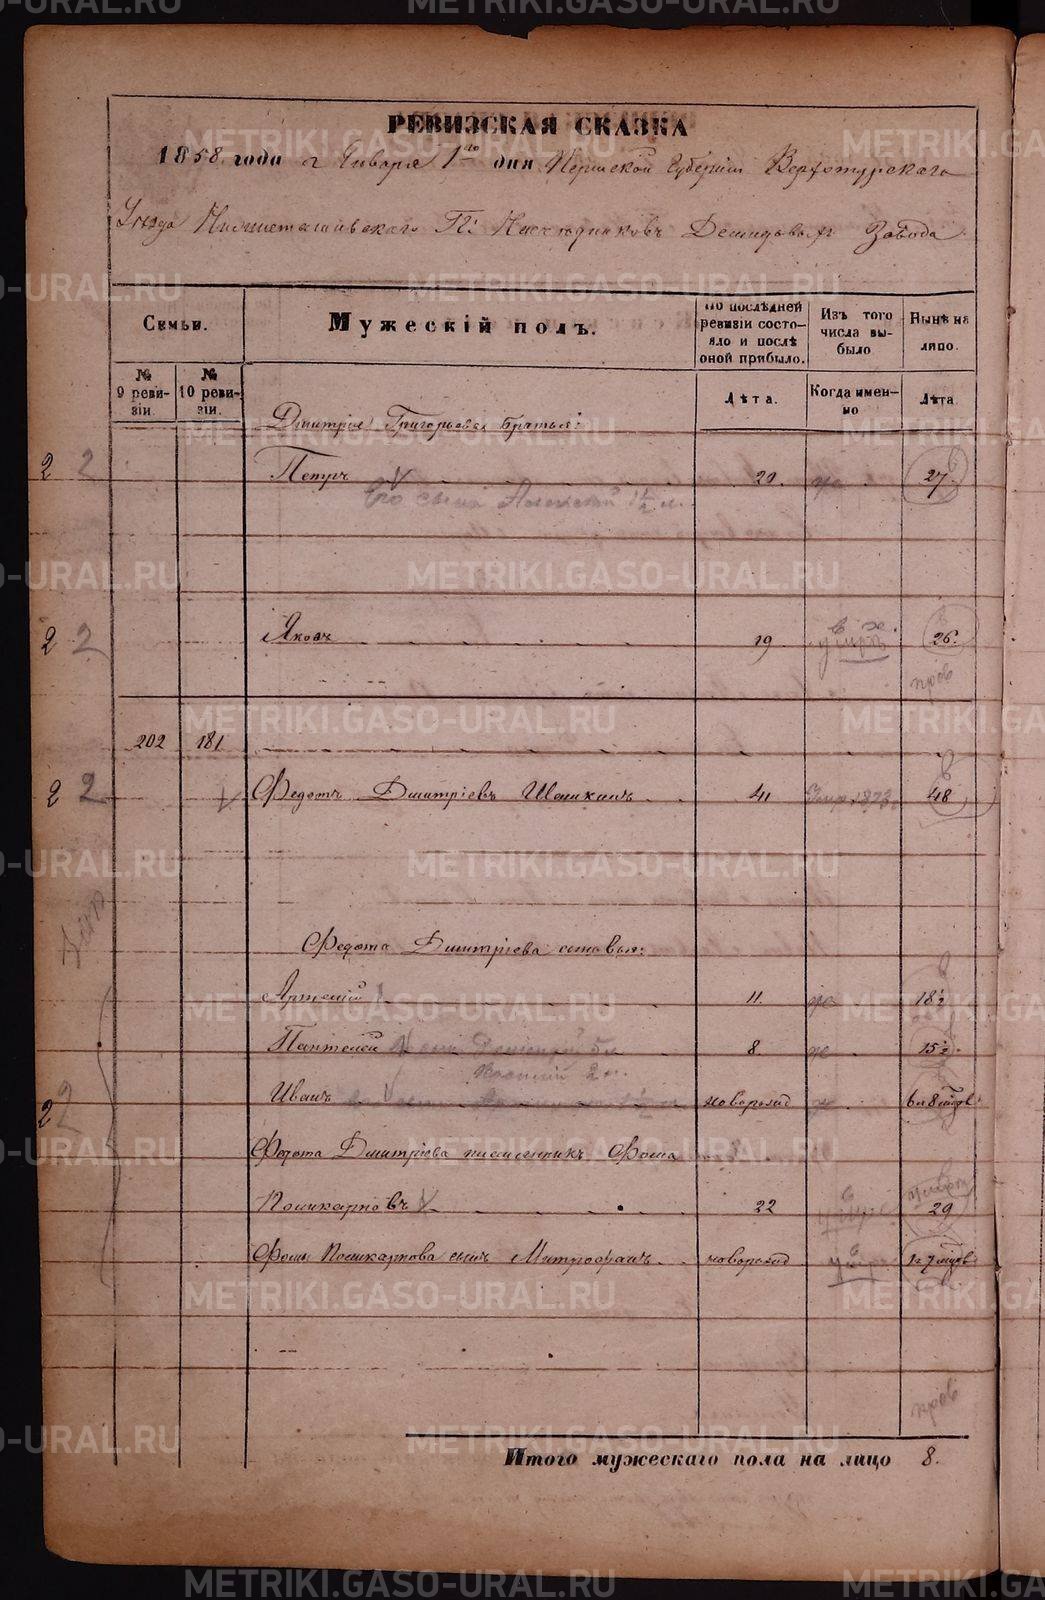 РЕВИЗСКАЯ СКАЗКА
1858 года Января 1го дня Пермской Губернiи Верхотурскаго
Уѣзда Нижнетагильскаго Гг. Наслѣдниковъ Демидовыхъ Завода
Семьи.
Мужескій полъ.
По послѣдней ревизіи состояло и послѣ оной прибыло.
Изъ того числа выбыло
Нынѣ на лицо.
№ 9 ревизіи.
№ 10 ревизіи.
Лѣта.
Когда именно
Лѣта
Дмитрія Григорьева братья:
2 2 Петръ 20 27
Его сынъ 1½ л.
2 2 Яковъ 19 умръ 26
пров
202 181
2 2 Федотъ Дмитріевъ 41 Умр. 1873 48
Федота Дмитріева сыновья:
Артемій 11. 18½
Пантелей сынъ 5 л 8. 15½
2 л.
2 2 Иванъ новорожд 6 л 8 мѣсв
Федота Дмитріева племянникъ Фома
Поликарповъ 22 29
Фомы Поликарпова сынъ Митрофанъ новорожд умръ 1 г 7 мѣсв
пров
Итого мужескаго пола на лицо 8.
METRIKI.GASO-URAL.RU